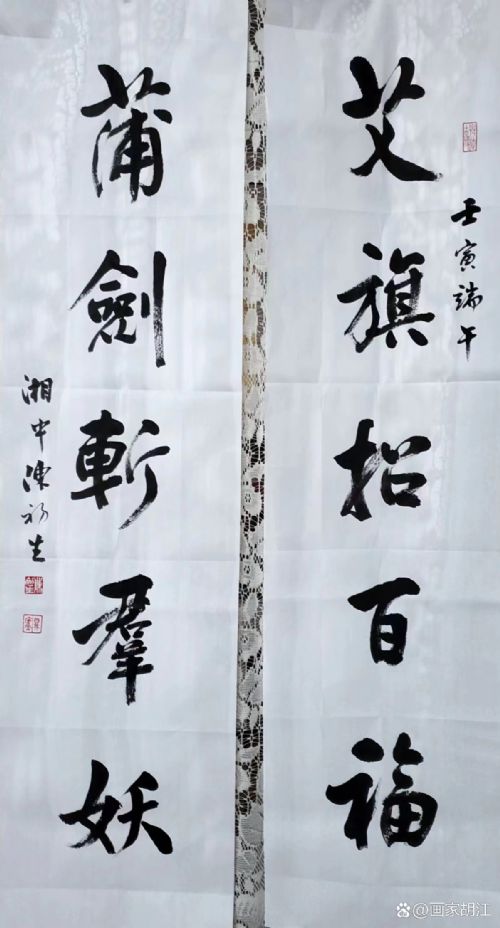 艾旗招百福
壬寅端午
蒲劍斬羣妖
湘中陳初生
@画家胡江